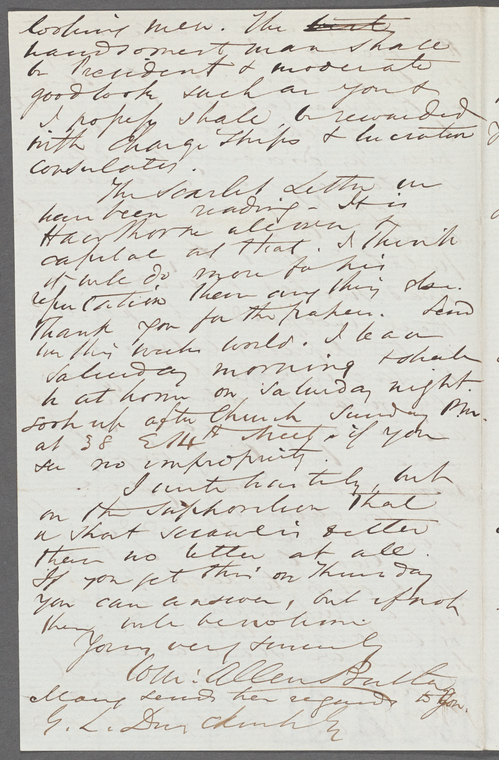 looking men. The
handsomest man shall
be President & moderate
good look such as yours &
I profess shall be rewarded
with Charge ships & lucrative
consulates.
The Scarlet Letter we
have been reading - It is
Hawthorne all over &
capital at that. I think
it will do more for his
reputation than any thing else.
thank you for the papers. Send
me this weeks world. I leave
Saturday morning & shall
be at home on Saturday night.
Look up after Church Sunday PM.
at 38 E 14th Street, if you
see no impropriety.
I write hastily, but
on the supposition that
a short scrawl is better
than no letter at all.
If you get this on Thursday
you can answer, but if not
there will be no time.
Yours very sincerely
Wm: Allen Butler
Mary sends her regards to you.
G. L. Duyckinck Esq